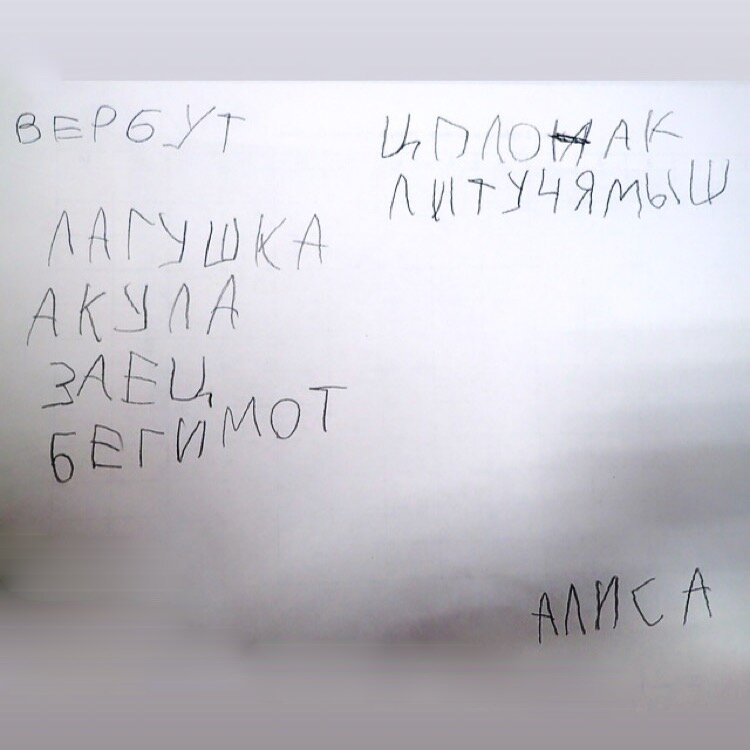 ВЕРБУТ
ЛАГУШКА
АКУЛА
ЗАЕЦ
БЕГИМОТ
ЦПЛОАК
ЛИТУЧЯМЫШ
АЛИСА